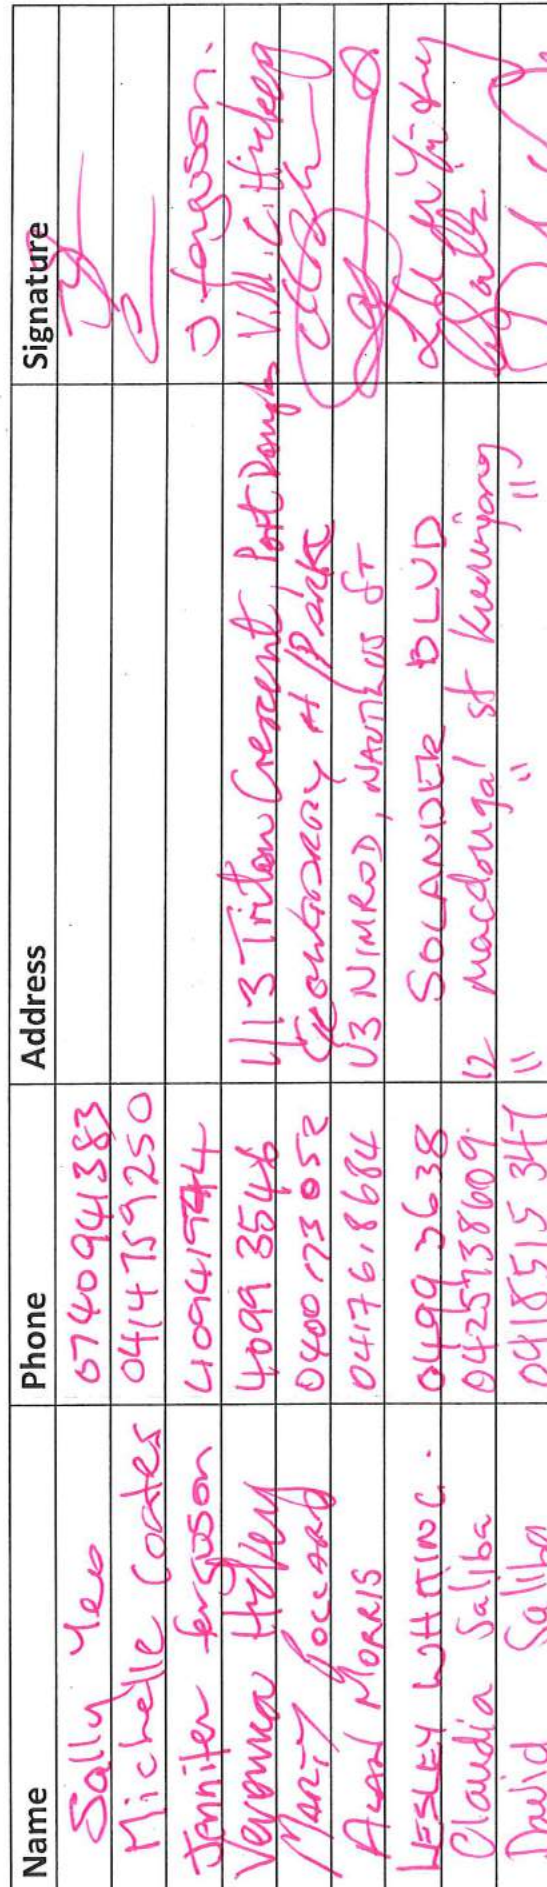 Name Phone Address Signature
Sally Yeo 0740941383
Michelle Coates 0414759250
Jennifer ferguson J ferguson.
Veronica Hickey 4099 3546 1/13 Triton Crescent, Port Douglas V.M.C. Hickey
MARTY 0400 173 052
ALAN MORRIS U3 NIMROD, NAUTILUS ST
LESLEY WHITING. SOLANDER BLVD
Claudia Saliba 0425738609. 12 Macdougal st Kuwinyang
David Saliba 0418515347 " " "